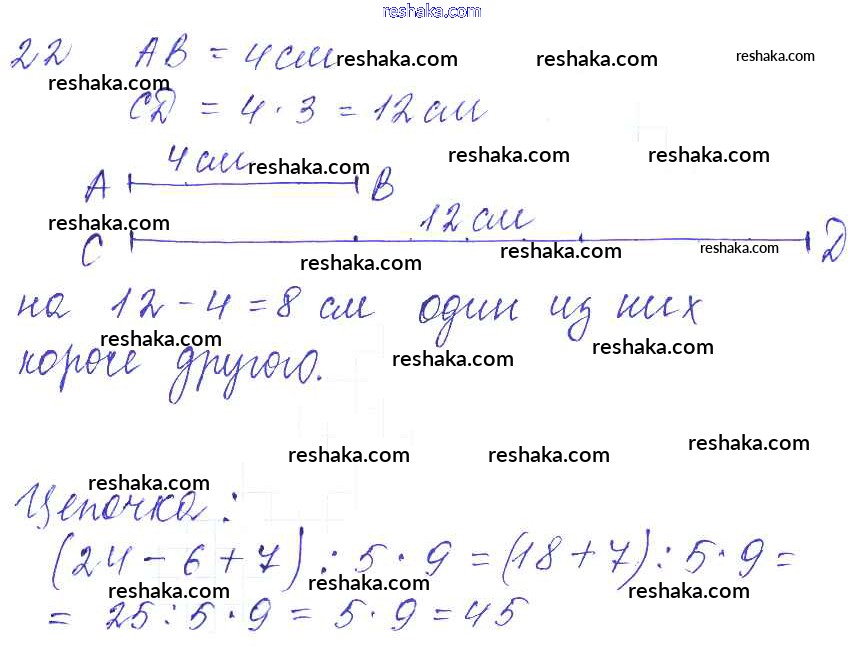 reshaka.com
22 AB = 4 см reshaka.com reshaka.com reshaka.com
reshaka.com
CD = 4 · 3 = 12 см
4 см reshaka.com reshaka.com reshaka.com
A B
reshaka.com 12 см
C reshaka.com reshaka.com reshaka.com D
на 12 - 4 = 8 см один из них
reshaka.com reshaka.com reshaka.com
короче другого.
reshaka.com reshaka.com reshaka.com
reshaka.com
Цепочка:
(24 - 6 + 7) : 5 · 9 = (18 + 7) : 5 · 9 =
reshaka.com reshaka.com reshaka.com
= 25 : 5 · 9 = 5 · 9 = 45